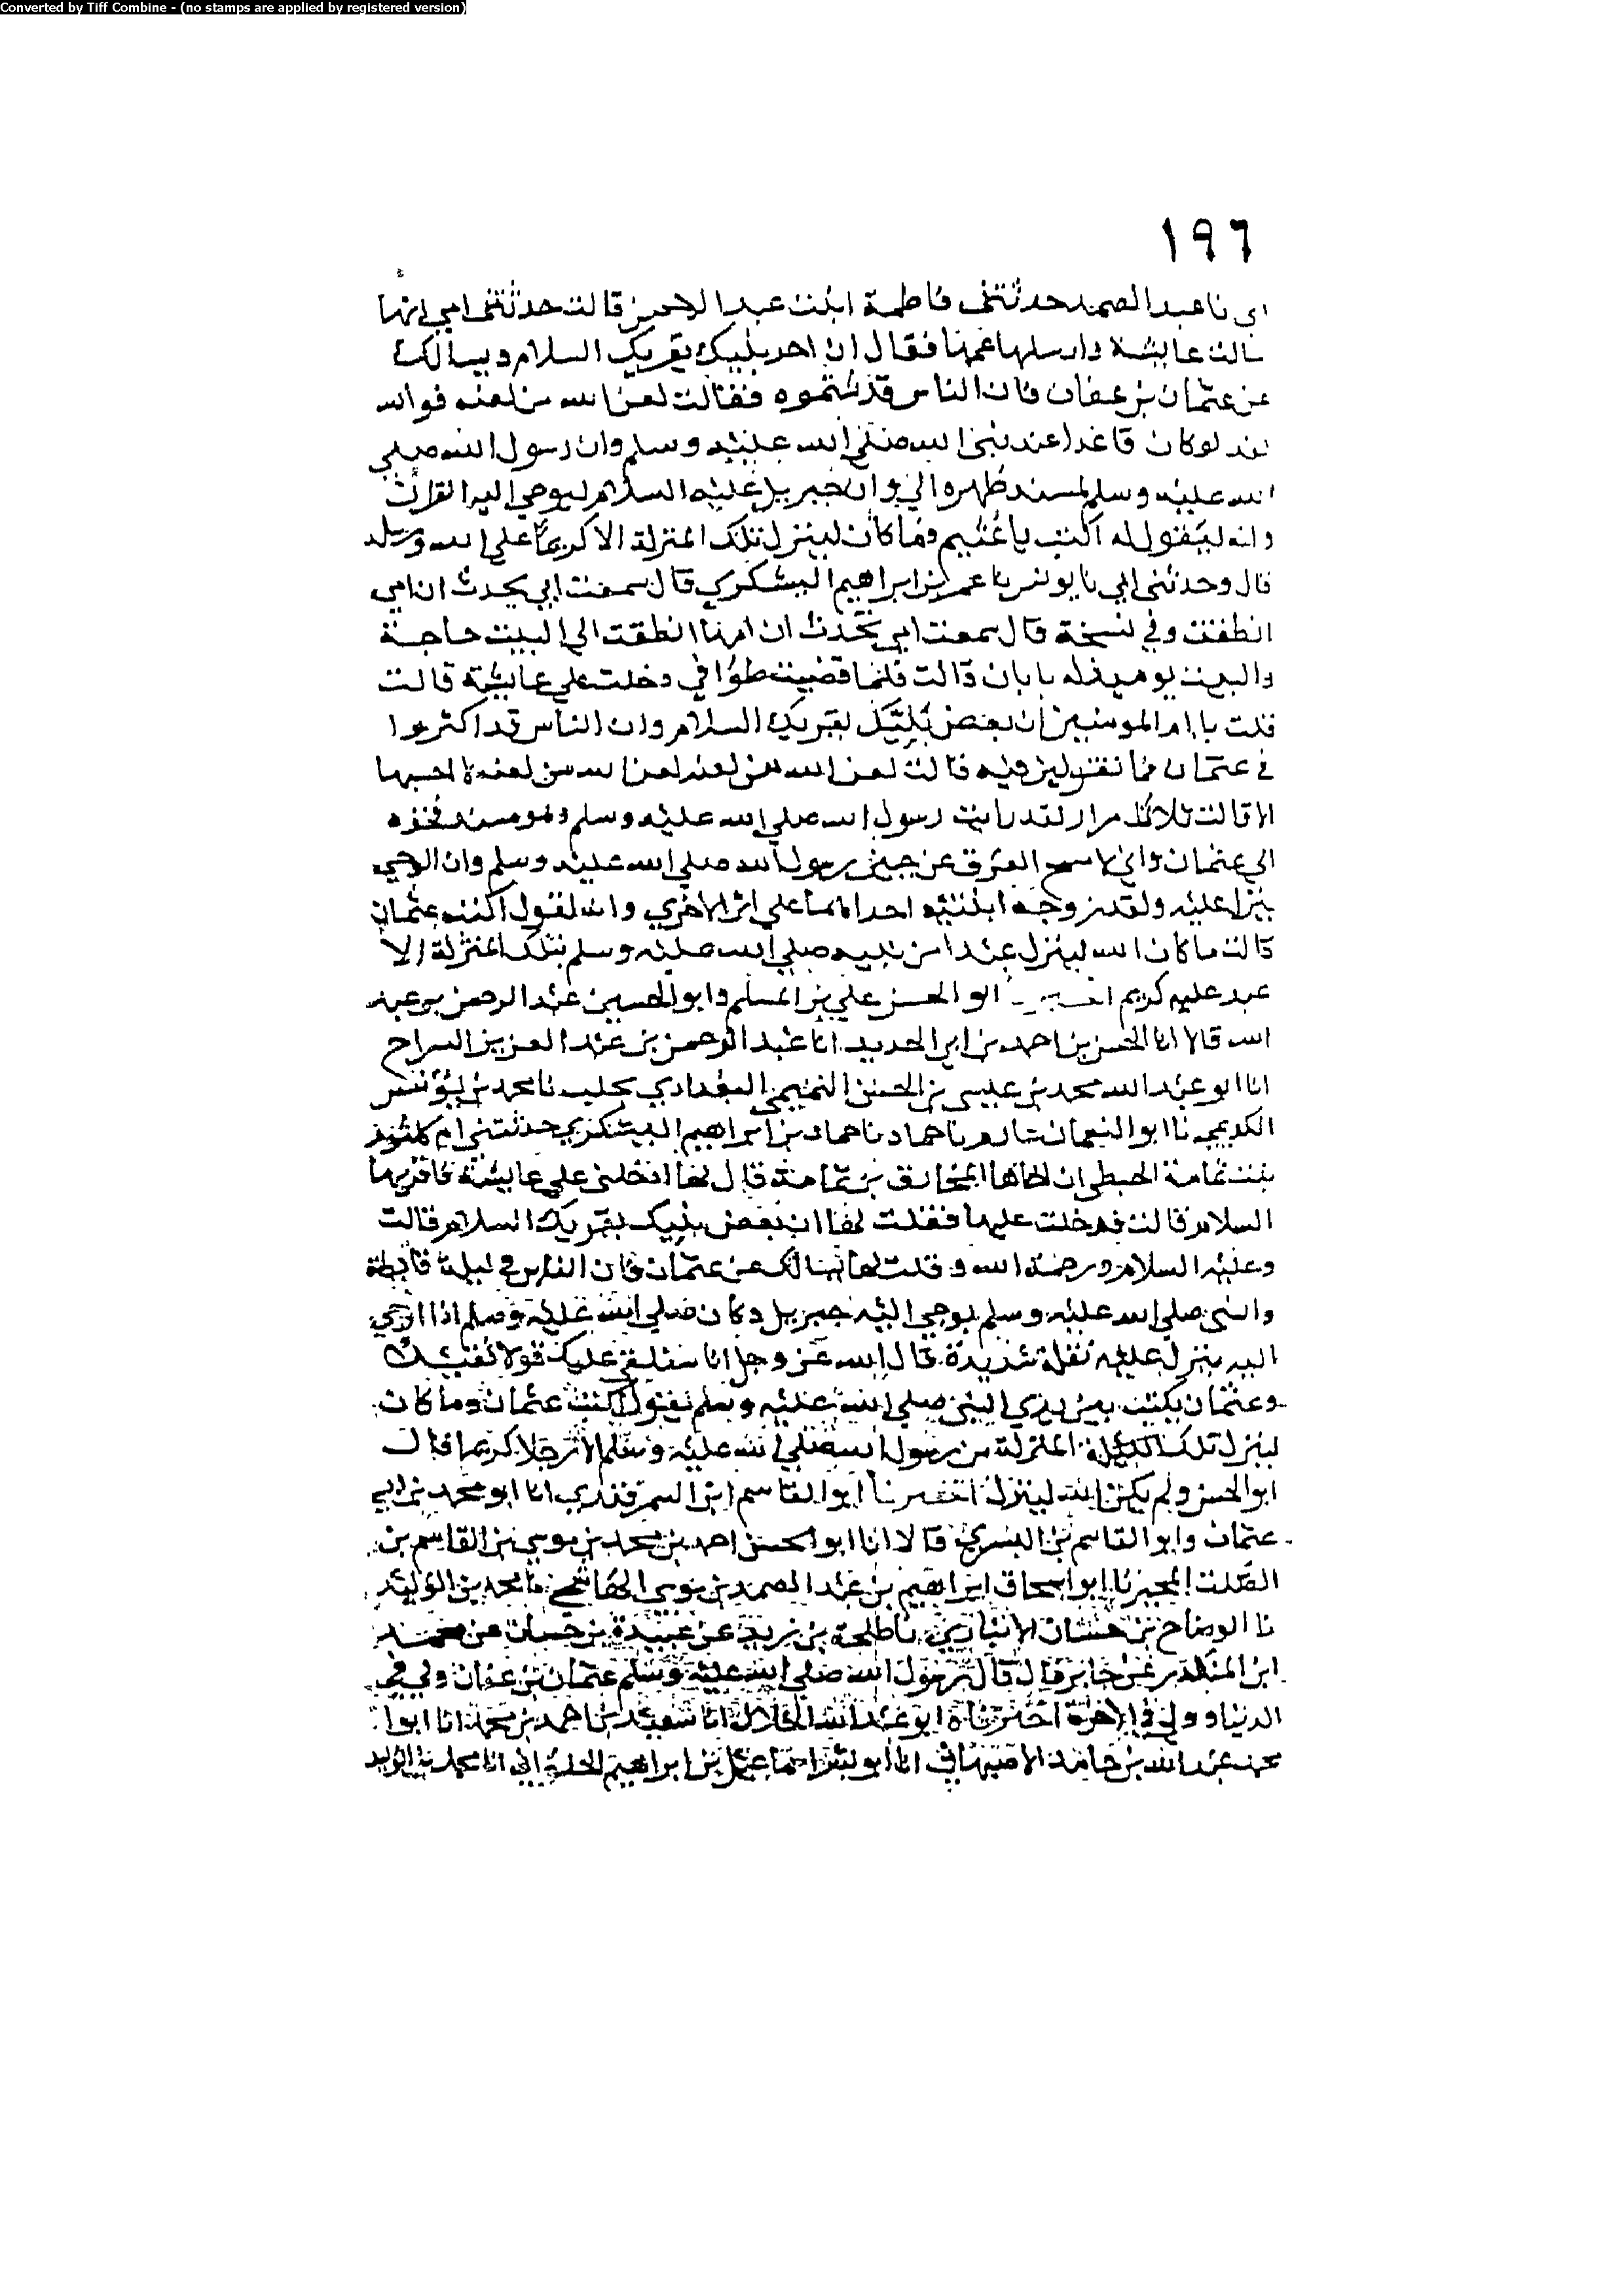 Converted by Tiff Combine - (no stamps are applied by registered version)
١٩٦
ابي نا عبد الصمد حدثتني فاطمة ابنت عبد الرحمن قالت حدثتني امي انها
سالت عايشة وارسلها عمها فقال ان احد بنيك يقريك السلام ويسالك
عن عثمان بن عفان فان الناس قد شتموه فقالت لعن الله من لعنه فوالله
لقد كان قاعدا عند نبي الله صلى الله عليه وسلم وان رسول الله صلي
الله عليه وسلم لمسند ظهره الي وان جبريل عليه السلام ليوحي اليه القرآن
وانه ليقول له اكتب يا عثيم وما كان لينزل تلك المنزلة الا كريما على الله ورسوله
قال وحدثني ابي نا يونس نا عمر بن ابراهيم اليشكري قال سمعت ابي يحدث ان امي
انطلقت وفي نسخة قال سمعت ابي يحدث ان امنا انطلقت الى البيت حاجة
والبيت يوميذ له بابان قالت فلما قضيت طوافي دخلت على عايشة قالت
قلت يا ام المومنين ان بعض بنيك يقريك السلام وان الناس قد اكثروا
في عثمان فما تقولين فيه قالت لعن الله من لعنه لعن الله من لعنه لا احسبها
الا قالت ثلاث مرار لقد رايت رسول الله صلى الله عليه وسلم وهو مسند فخذه
الي عثمان واني لامسح العرق عن جبين رسول الله صلى الله عليه وسلم وان الوحي
ينزل عليه ولقد زوجه ابنتيه احداهما على اثر الاخري وانه ليقول اكتب عثمان
قالت ما كان الله لينزل عبدا من نبيه صلى الله عليه وسلم بتلك المنزلة الا
عبد عليه كريم ابو الحسن علي بن المسلم وابو الحسين عبد الرحمن بن عبد
الله قالا انا الحسن بن احمد بن ابي الحديد انا عبد الرحمن بن عبد العزيز السراج
انا ابو عبد الله محمد بن عيسى بن الحسن التميمي البغدادي بحلب نا محمد بن يونس
الكديمي نا ابو النعمان عارم نا حماد نا حماد بن ابراهيم اليشكري حدثتني ام كلثوم
بنت ثمامة الحبطي ان اخاها المخارق بن ثمامة قال لها ادخلي على عايشة فاقريها
السلام قالت فدخلت عليها فقلت لها ان بعض بنيك يقريك السلام قالت
وعليه السلام ورحمة الله و قلت لها يسالك عن عثمان فان الناس في ليلة قايظة
والنبي صلى الله عليه وسلم يوحي اليه جبريل وكان صلى الله عليه وسلم اذا اوحي
اليه ينزل عليه ثقلة شديدة قال الله عز وجل انا سنلقي عليك قولا ثقيلا
وعثمان يكتب بين يدي النبي صلى الله عليه وسلم يقول اكتب عثمان وما كان
لينزل تلك المنزلة من رسول الله صلى الله عليه وسلم الا رجلا كريما قال
ابو الحسن ولم يكن الله لينزل اخبرنا ابو القاسم ابن السمرقندي انا ابو محمد بن ابي
عثمان وابو القاسم بن البسري قالا انا ابو الحسن احمد بن محمد بن موسي بن القاسم بن
الصلت المجبر نا ابو اسحاق ابراهيم بن عبد الصمد بن موسى الهاشمي نا محمد بن الوليد
نا الوضاح بن حسان الانباري نا طلحة بن زيد عن عبيدة بن حسان عن محمد
ابن المنكدر عن جابر قال قال رسول الله صلى الله عليه وسلم عثمان بن عفان وليي في
الدنيا ووليي في الاخرة اخبرناه ابو عبد الله الخلال انا سعيد بن احمد بن محمد انا ابو
محمد عبد الله بن حامد الاصبهاني انا ابو اسماعيل بن ابراهيم انا محمد بن الوليد